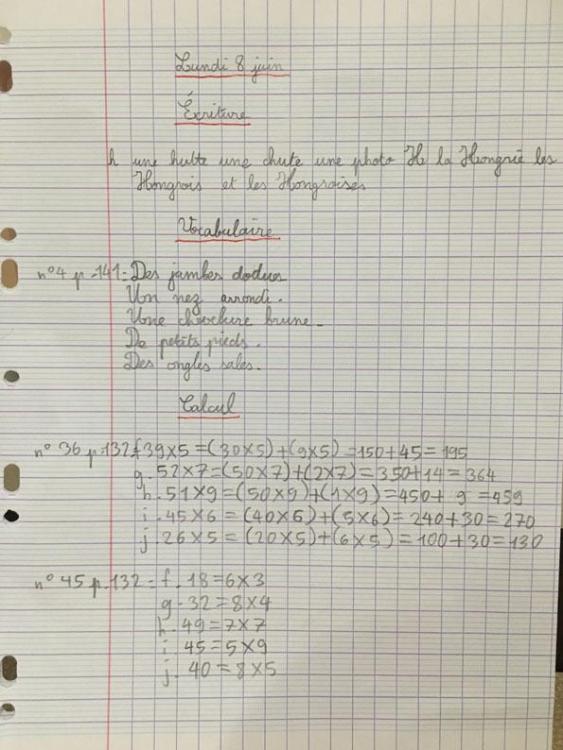 Lundi 8 juin
Écriture
h une hutte une chute une photo H la Hongrie les
Hongrois et les Hongroises
Vocabulaire
n°4 p.141= Des jambes dodues
Un nez arrondi.
Une chevelure brune.
De petits pieds.
Des ongles sales.
Calcul
n°36 p.132 f 39×5=(30×5)+(9×5)=150+45=195
g. 52×7=(50×7)+(2×7)=350+14=364
h. 51×9=(50×9)+(1×9)=450+ 9 =459
i. 45×6 = (40×6)+(5×6)= 240+30=270
j. 26×5 = (20×5)+(6×5)=100+30=130
n°45 p.132= f. 18=6×3
g. 32=8×4
h. 49=7×7
i. 45=5×9
j. 40=8×5